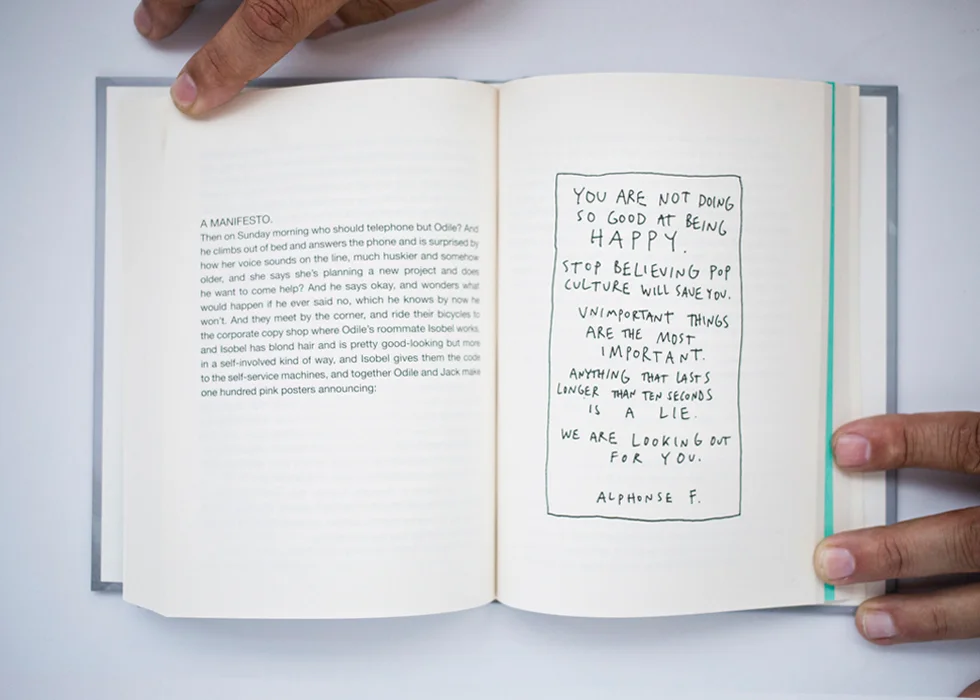 A MANIFESTO.
Then on Sunday morning who should telephone but Odile? And
he climbs out of bed and answers the phone and is surprised by
how her voice sounds on the line, much huskier and somehow
older, and she says she's planning a new project and does
he want to come help? And he says okay, and wonders what
would happen if he ever said no, which he knows by now he
won't. And they meet by the corner, and ride their bicycles to
the corporate copy shop where Odile's roommate Isobel works,
and Isobel has blond hair and is pretty good-looking but more
in a self-involved kind of way, and Isobel gives them the code
to the self-service machines, and together Odile and Jack make
one hundred pink posters announcing:
YOU ARE NOT DOING
SO GOOD AT BEING
HAPPY.
STOP BELIEVING POP
CULTURE WILL SAVE YOU.
UNIMPORTANT THINGS
ARE THE MOST
IMPORTANT.
ANYTHING THAT LASTS
LONGER THAN TEN SECONDS
IS A LIE.
WE ARE LOOKING OUT
FOR YOU.
ALPHONSE F.